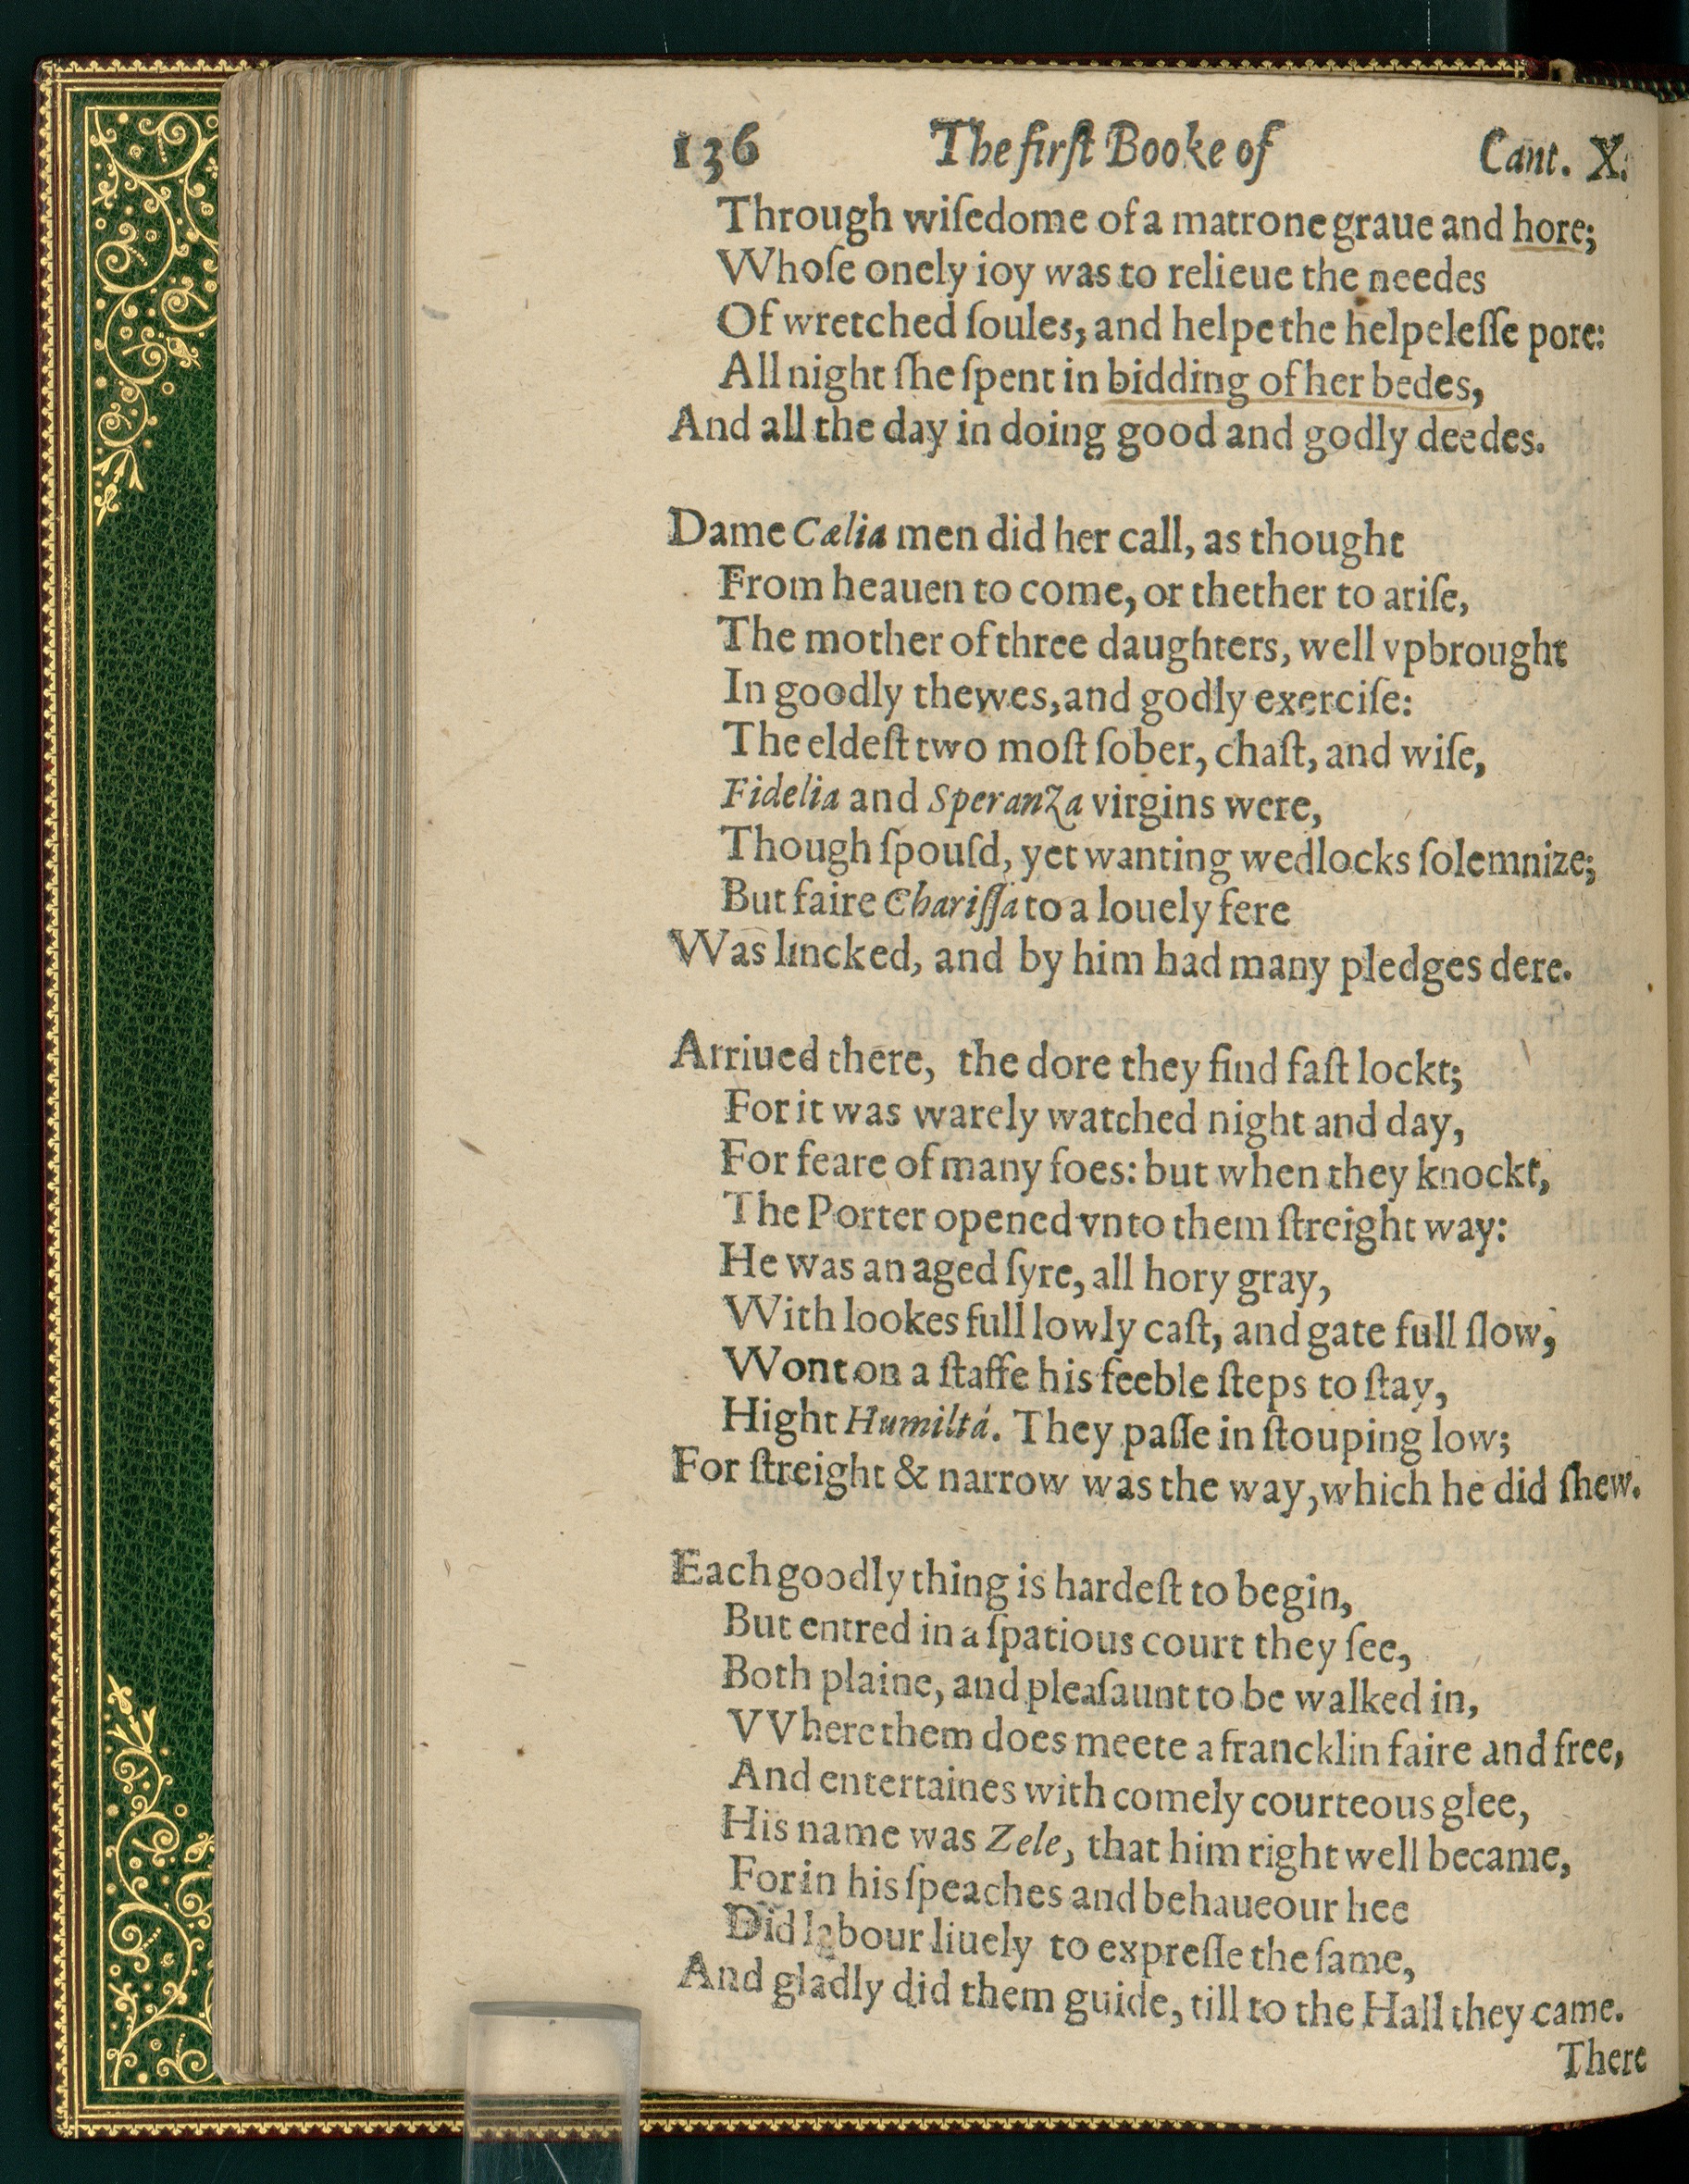 136 The firſt Booke of Cant. X.
Through wiſedome of a matrone graue and hore;
Whoſe onely ioy was to relieue the needes
Of wretched ſoules, and helpe the helpeleſſe pore:
All night ſhe ſpent in bidding of her bedes,
And all the day in doing good and godly deedes.
Dame Cælia men did her call, as thought
From heauen to come, or thether to ariſe,
The mother of three daughters, well vpbrought
In goodly thewes, and godly exerciſe:
The eldeſt two moſt ſober, chaſt, and wiſe,
Fidelia and Speranza virgins were,
Though ſpouſd, yet wanting wedlocks ſolemnize;
But faire Chariſſa to a louely fere
Was lincked, and by him had many pledges dere.
Arriued there, the dore they find faſt lockt;
For it was warely watched night and day,
For feare of many foes: but when they knockt,
The Porter opened vnto them ſtreight way:
He was an aged ſyre, all hory gray,
With lookes full lowly caſt, and gate full ſlow,
Wont on a ſtaffe his feeble ſteps to ſtay,
Hight Humiltá. They paſſe in ſtouping low;
For ſtreight & narrow was the way, which he did ſhew.
Each goodly thing is hardeſt to begin,
But entred in a ſpatious court they ſee,
Both plaine, and pleaſaunt to be walked in,
VVhere them does meete a francklin faire and free,
And entertaines with comely courteous glee,
His name was Zele, that him right well became,
For in his ſpeaches and behaueour hee
Did labour liuely to expreſſe the ſame,
And gladly did them guide, till to the Hall they came.
There